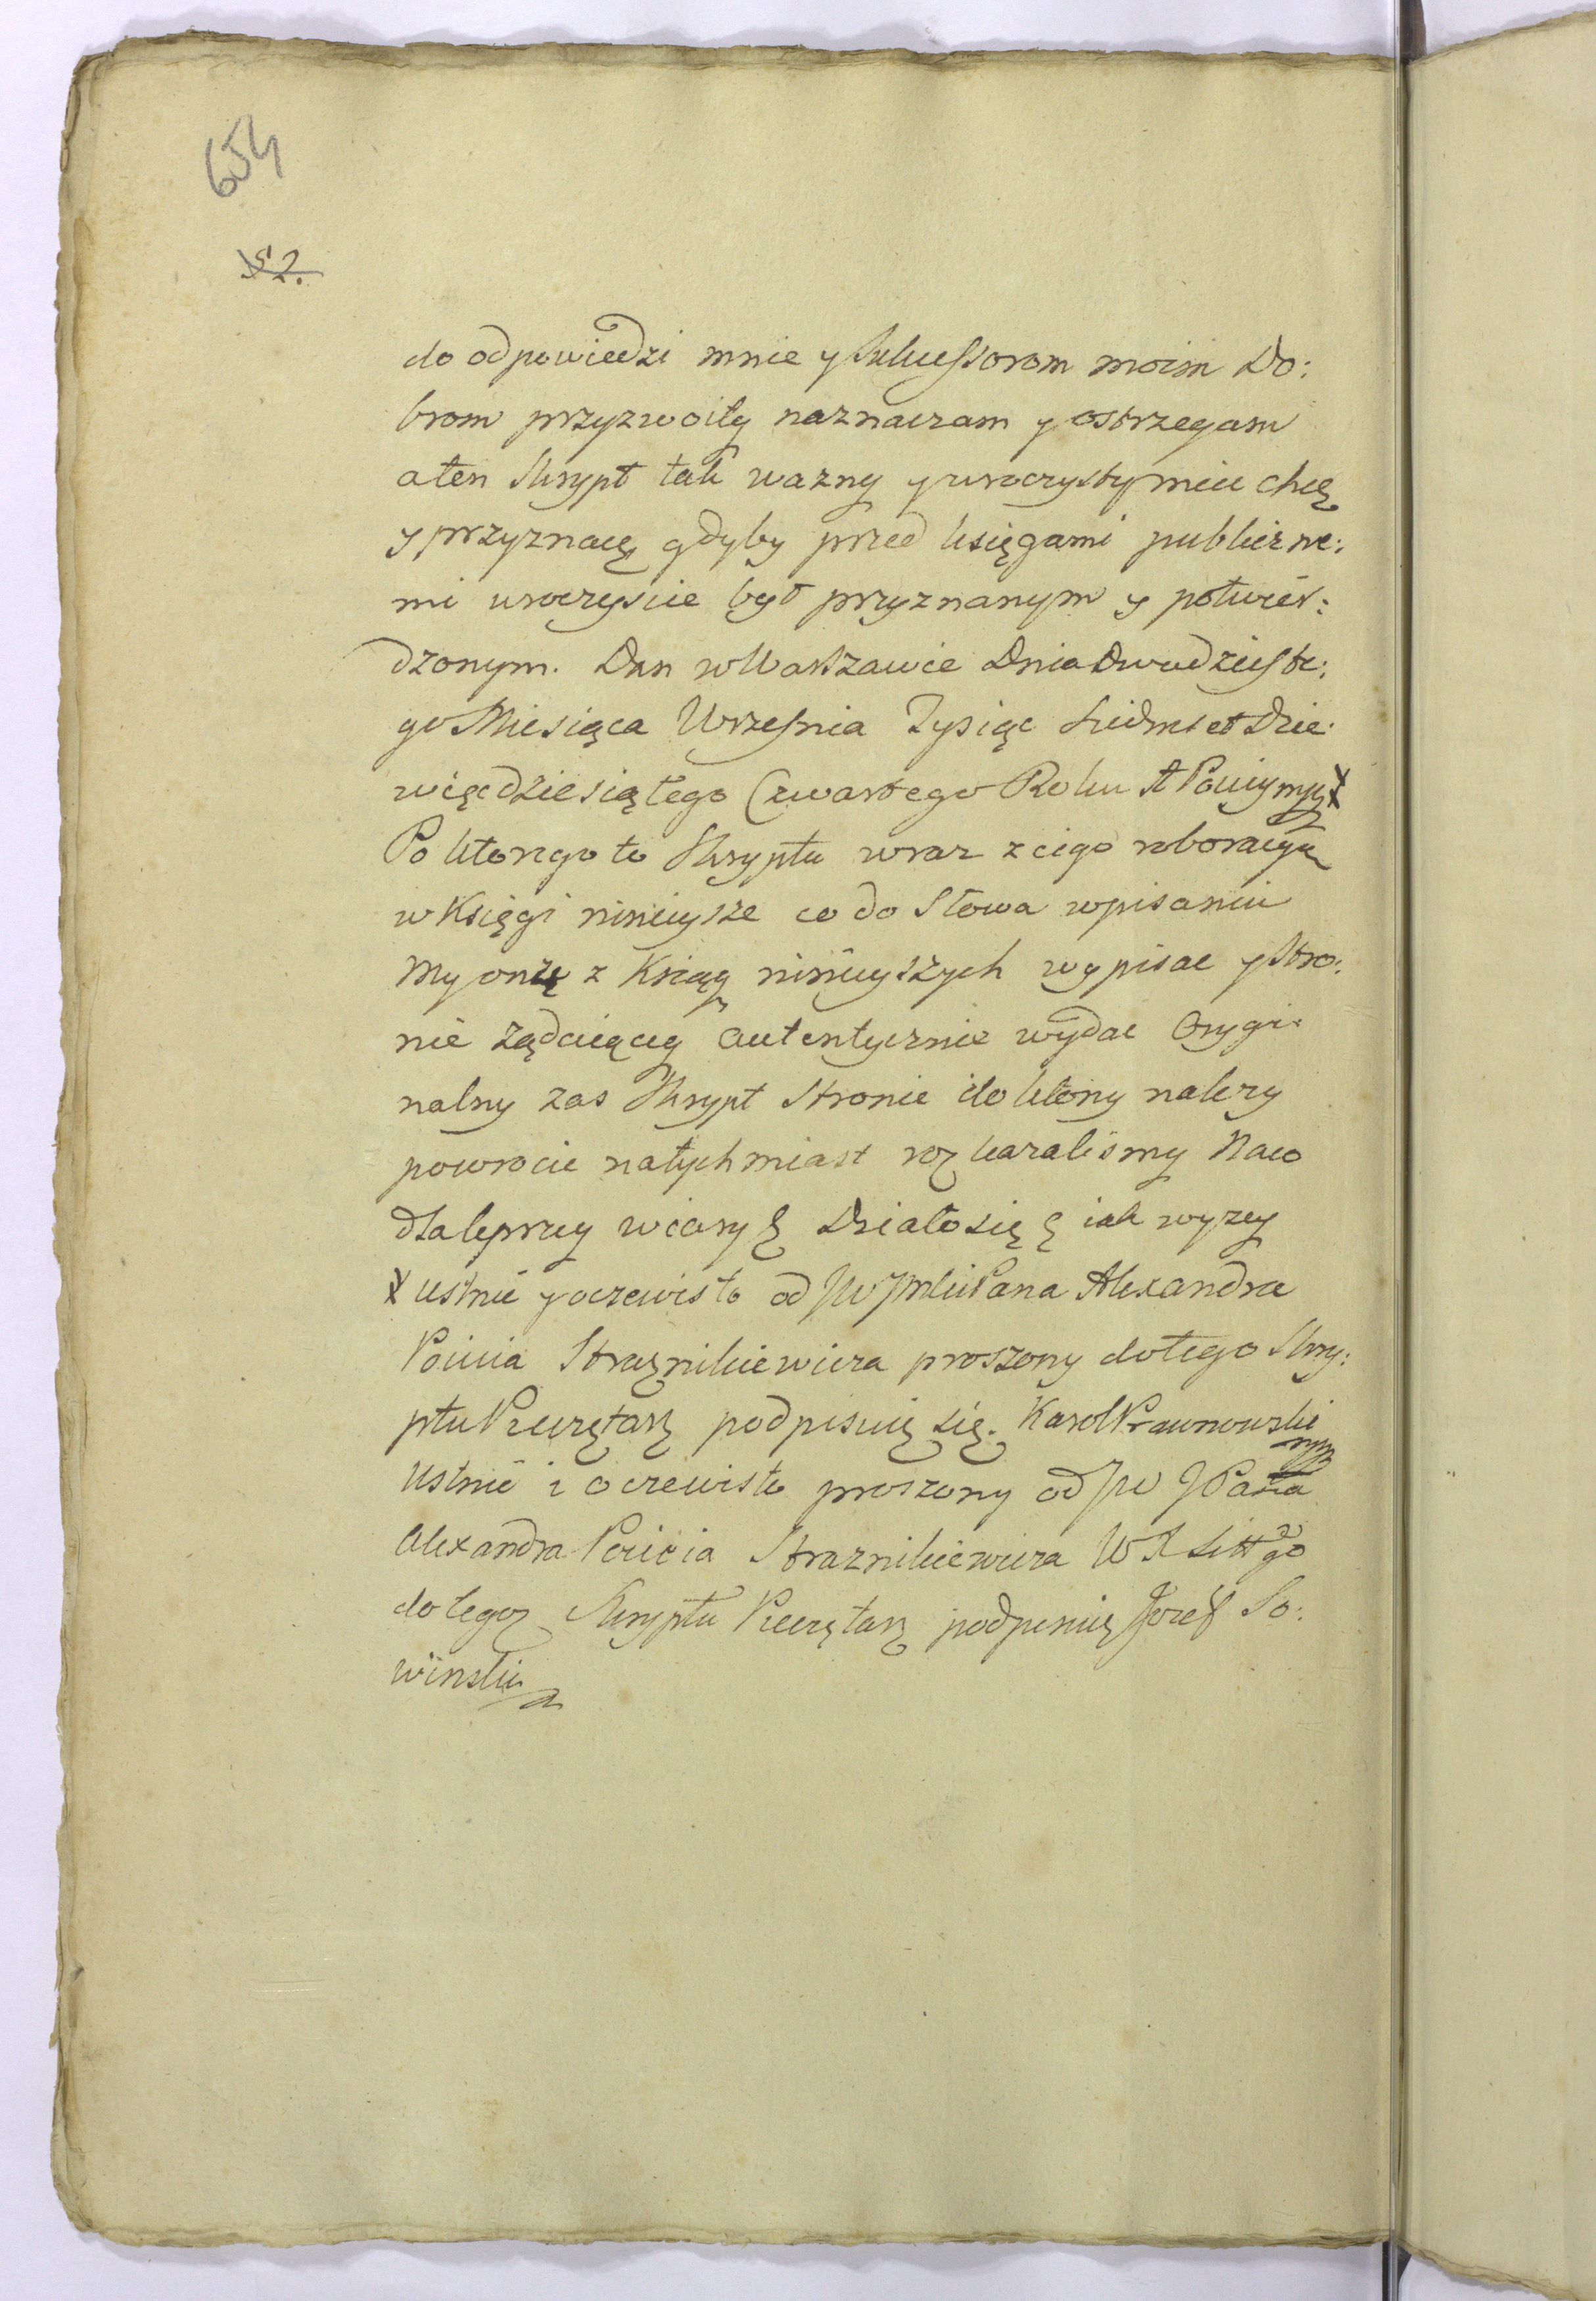 654
52.
do odpowiedzi mnie y Sukcessorom moim Do:
brom przyzwoity naznaczam y ostrzegam
a ten Skrypt tak wazny y uroczysty miec chcę
y przyznaię gdyby przed księgami publiczne:
mi uroczyscie był przyznanym y potwier:
dzonym. Dan w Warszawie Dnia Dwudzieste:
go Miesiąca Wrzesnia Tysiąc Siedmset Dzie:
więcdziesiątego Czwartego Roku A
Po ktorego to Skryptu wraz z iego roboracyą
w Księgi ninieysze co do Słowa wpisaniu
My onzę z Ksiąg ninieyszych wypisac y Stro:
nie ządaiącey autentycznie wydac Orygi:
nalny zas Skrypt Stronie do ktorey nalezy
powrocic natychmiast rozkazalismy Na co
dla lepszey wiary § Działo się § iak wyzey
X ustnie y oczewisto od JW JmciPana Alexandra
Pocieia Strażnikiewicza proszony do tego Skry:
ptu Pieczętarz podpisuię się. Karol Praunowski mp
Ustnie i oczewisto proszony od JW JPana
Alexandra Pocieia Straznikiewicza W X Litt go
do tego Skryptu Pieczętarz podpisuię Jozef So:
winski